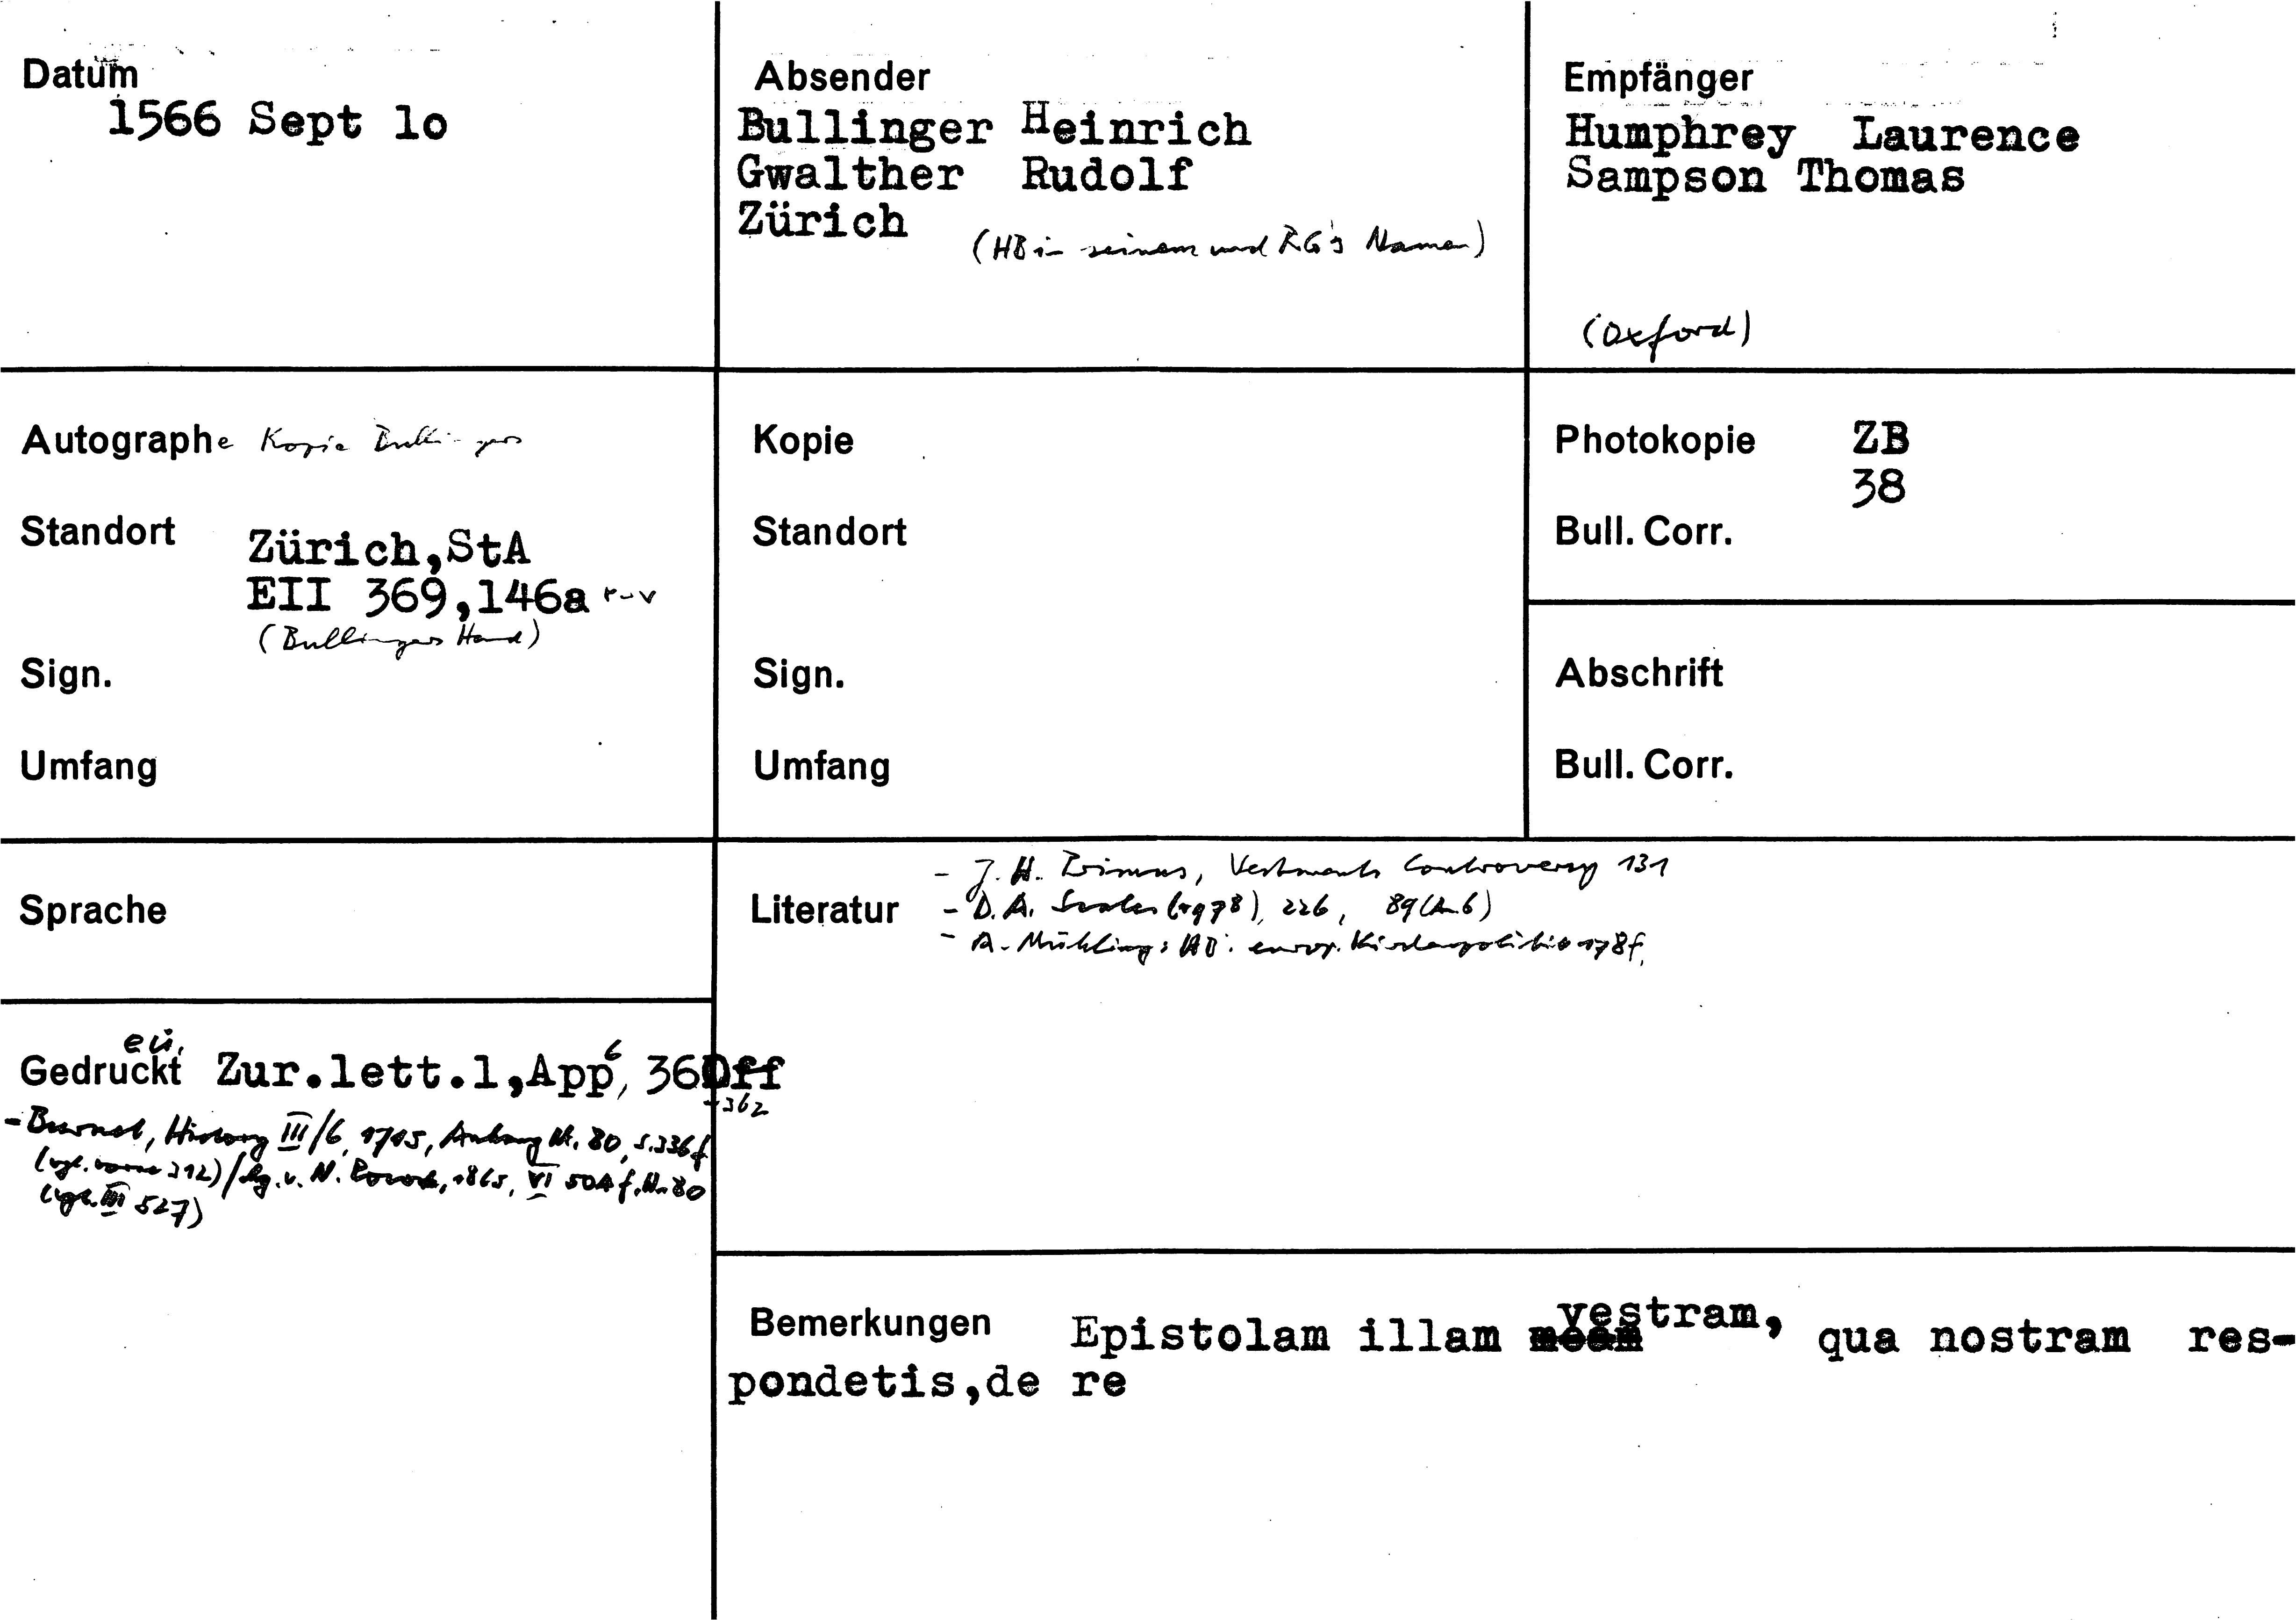 Datum
1566 Sept 1o
Absender
Bullinger Heinrich
Gwalther Rudolf
Zürich
(HB in seinem und RG's Namen)
Empfänger
Humphrey Laurence
Sampson Thomas
(Oxford)
Autographe Kopie Bullingers
Standort
Zürich,StA
EII 369,146a r-v
(Bullingers Hand)
Sign.
Umfang
Kopie
Standort
Sign.
Umfang
Photokopie ZB
38
Bull. Corr.
Abschrift
Bull. Corr.
Sprache
Literatur
- J. H. Primus, Vestments Controversy 131
- D. A. 226, 89 (A. 6)
- A. Mühling: HB europ. Kirchenpolitik 178f.
Gedruckt Zur.lett.1,App 6, 360ff
-362
- Burnet, History III/6, 1715, Anhang Nr. 80, S. 336f
(vgl. vorne 312) / hg. v. N. Pocock, 1865, VI 504f. Nr. 80
(vgl. III 527)
Bemerkungen Epistolam illam meam vestram, qua nostram res-
pondetis,de re